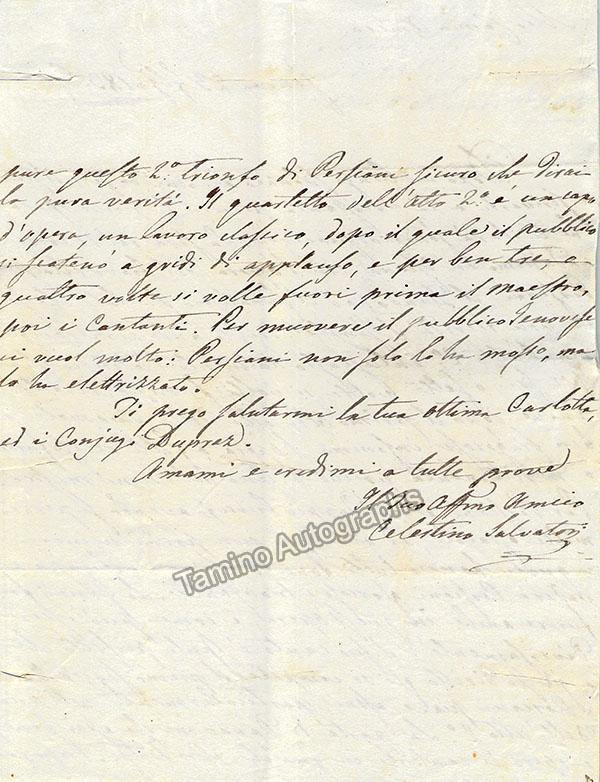 pure questo 2.° trionfo di Persiani sicuro che dirai
la pura verità. Il quartetto dell'atto 2.° è un capo
d'opera, un lavoro classico, dopo il quale il pubblico
si scatenò a gridi di applauso, e per ben tre, o
quattro volte si volle fuori prima il maestro,
poi i Cantanti. Per muovere il pubblico Genovese
ci vuol molto: Persiani non solo lo ha mosso, ma
lo ha elettrizzato.
Ti prego salutarmi la tua ottima Carlotta,
ed i Conjugi Duprez.
Amami e credimi a tutte prove
Il Tuo Affmo Amico
Celestino Salvatori
Tamino Autographs